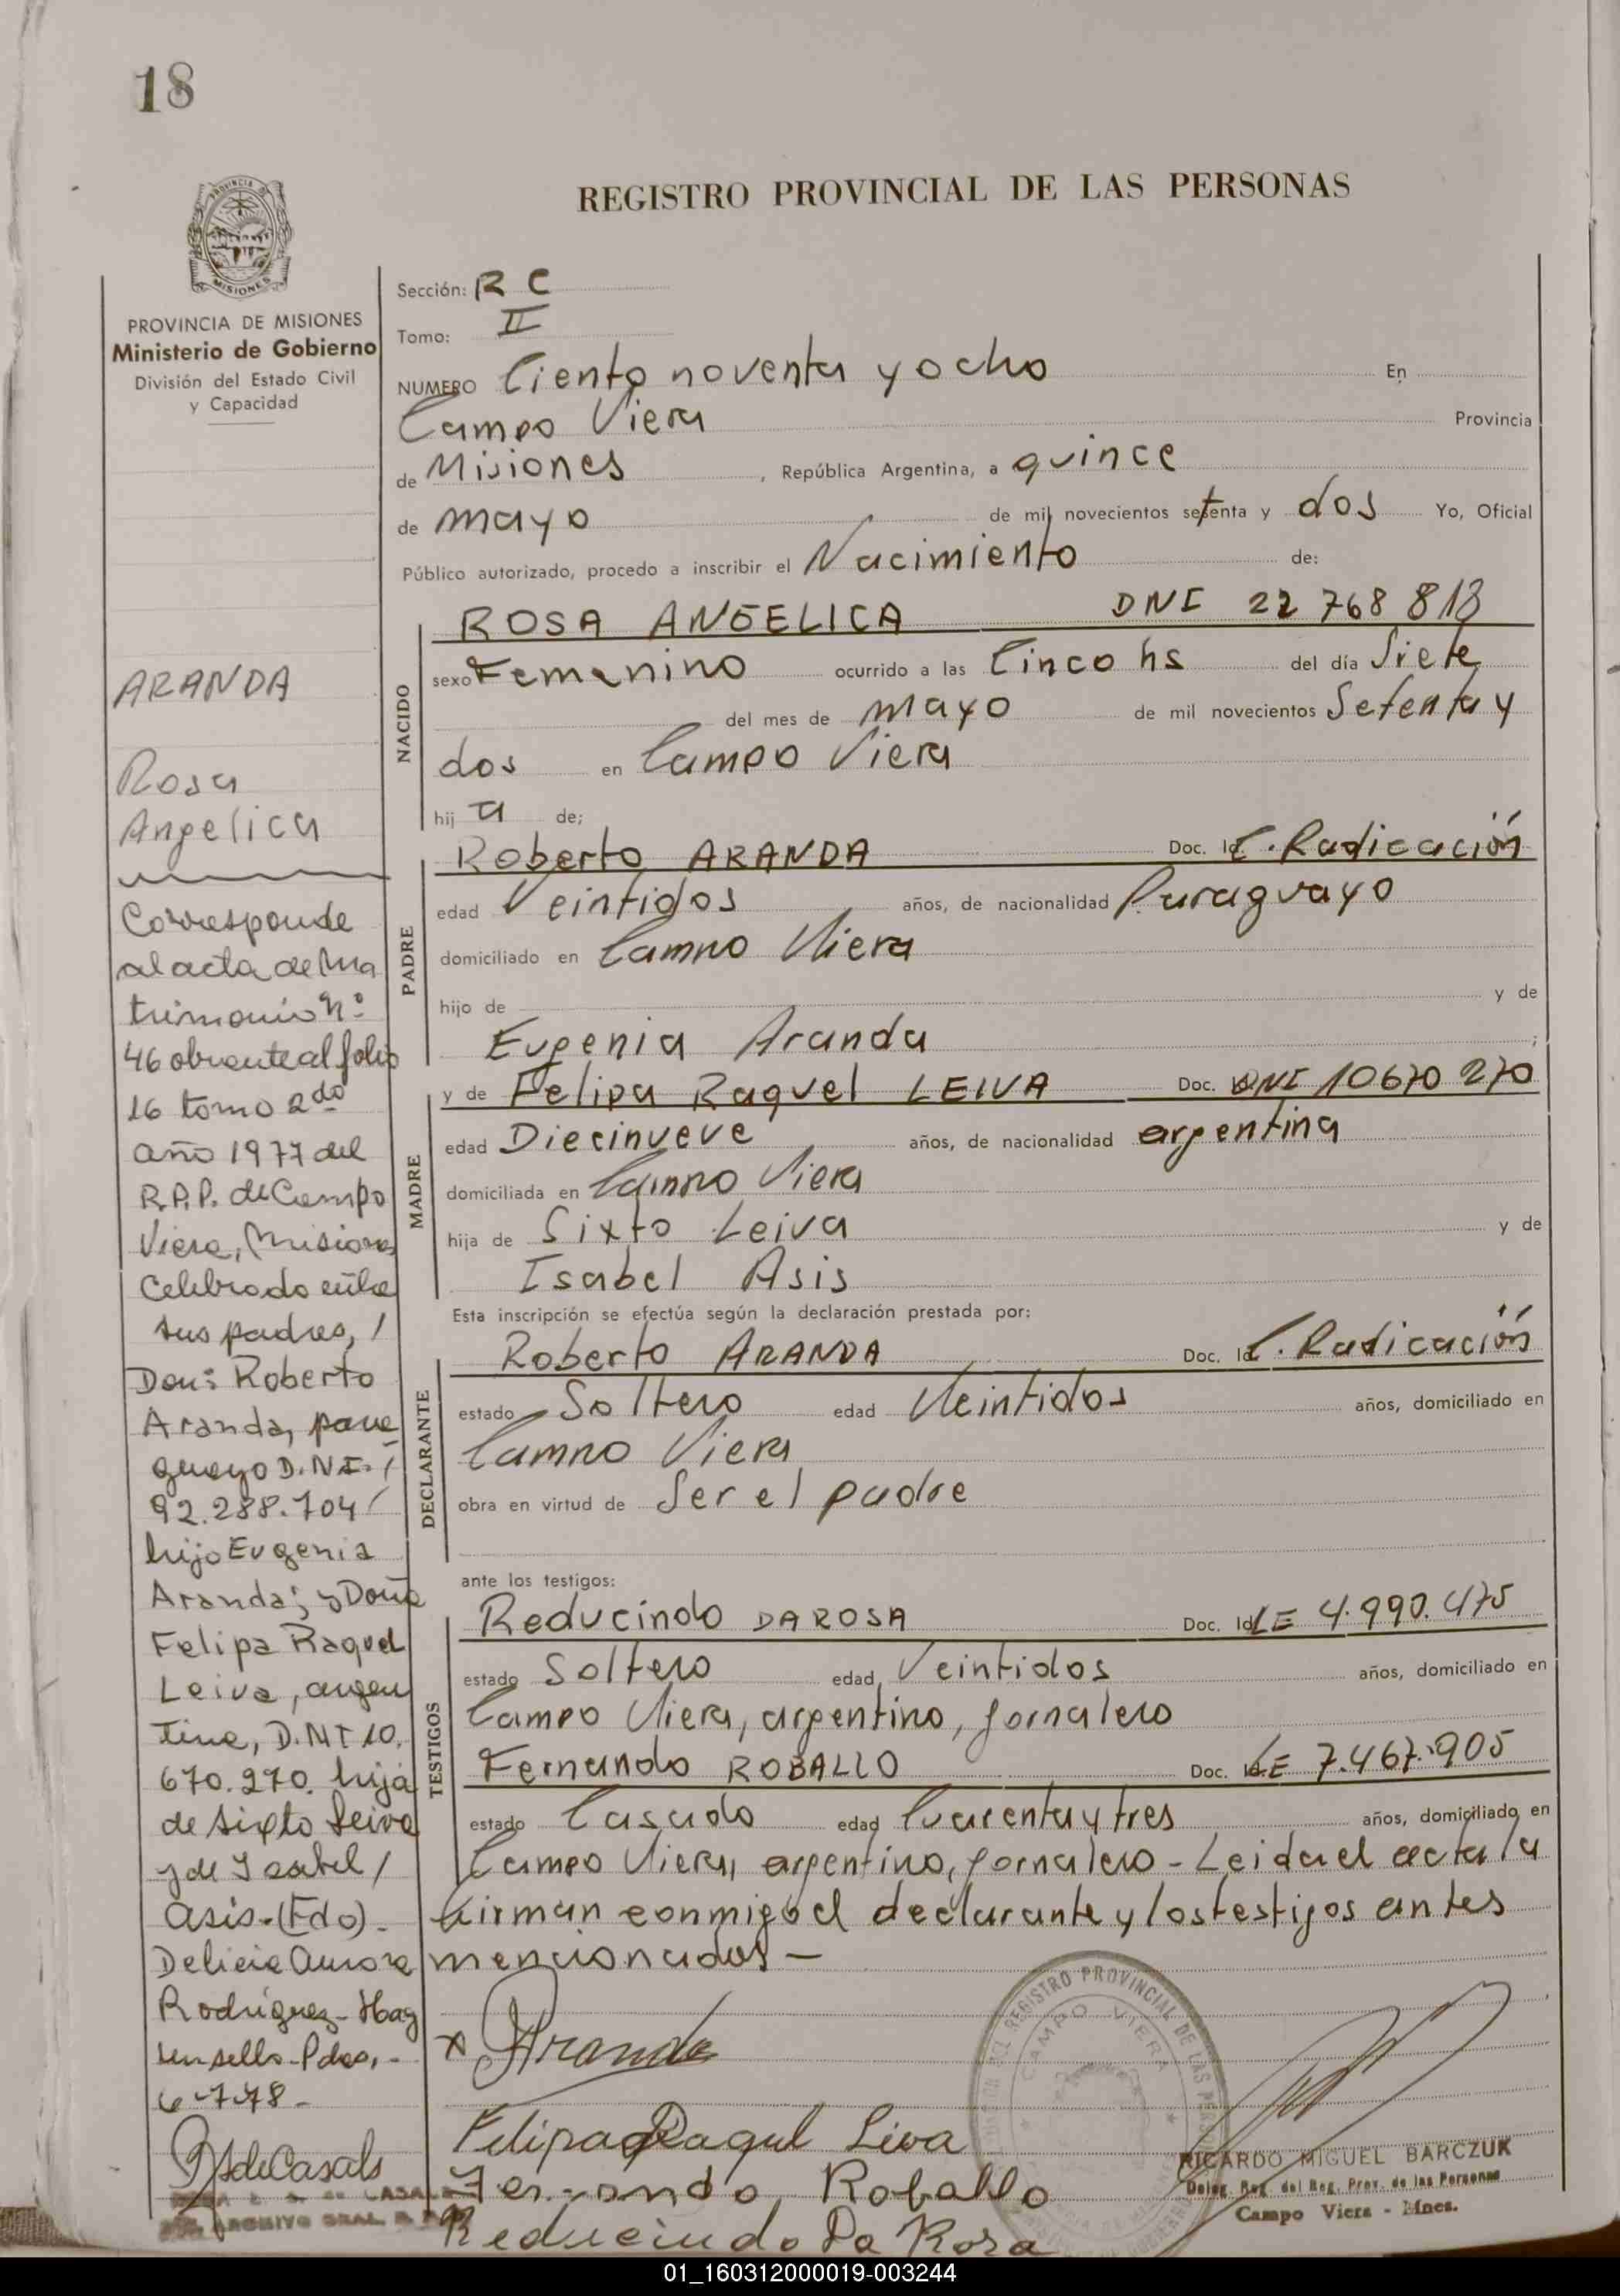 18
REGISTRO PROVINCIAL DE LAS PERSONAS
PROVINCIA DE
MISIONES
PROVINCIA DE MISIONES
Ministerio de Gobierno
División del Estado Civil
y Capacidad
ARANDA
Rosa
Angelica
Corresponde
al acta de Ma
trimonio nº
46 obrante al folio
16 tomo 2do
año 1977 del
R.P.P. de Campo
Viera, Misiones
Celebrado entre
sus padres, /
Don: Roberto
Aranda, para
guayo D.N.I. /
92.288.704 /
hijo Eugenia
Aranda; y Doña
Felipa Raquel
Leiva, argen
tina, D.N.I 10.
670.270. hija
de Sixto Leiva
y de Isabel /
Asis.-(Fdo)-
Delicia Aurora
Rodríguez- Hay
un sello- Pdas,-
6-7-78-
Sección: R C
Tomo: II
NUMERO Ciento noventa y ocho En
Campo Viera Provincia
de Misiones, República Argentina, a quince
de mayo de mil novecientos setenta y dos Yo, Oficial
Público autorizado, procedo a inscribir el Nacimiento de:
NACIDO
ROSA ANGELICA DNI 22 768 818
sexo Femenino ocurrido a las Cinco hs del día Siete
del mes de mayo de mil novecientos Setenta y
dos en Campo Viera
hij a de;
PADRE
Roberto ARANDA Doc. Id C. Radicación
edad Veintidos años, de nacionalidad Paraguayo
domiciliado en Campo Viera
hijo de y de
Eugenia Aranda ;
MADRE
y de Felipa Raquel LEIVA Doc. DNI 10670270
edad Diecinueve años, de nacionalidad argentina
domiciliada en Campo Viera
hija de Sixto Leiva y de
Isabel Asis
Esta inscripción se efectúa según la declaración prestada por:
DECLARANTE
Roberto ARANDA Doc. Id C. Radicación
estado Soltero edad Veintidos años, domiciliado en
Campo Viera
obra en virtud de Ser el padre
ante los testigos:
TESTIGOS
Reducindo DAROSA Doc. Id LE 4.990.475
estado Soltero edad Veintidos años, domiciliado en
Campo Viera, argentino, jornalero
Fernando ROBALLO Doc. Id LE 7.467.905
estado Casado edad Cuarenta y tres años, domiciliado en
Campo Viera, argentino, jornalero - Leida el acta la
firman conmigo el declarante y los testigos antes
mencionados —
x Aranda
Felipa Raquel Liva
Fernando Roballo
Reducindo Da Rosa
REGISTRO PROVINCIAL DE LAS
CAMPO VIERA
RICARDO MIGUEL BARCZUK
Deleg. Reg. del Reg. Prov. de las Personas
Campo Viera - Mnes.
01_160312000019-003244